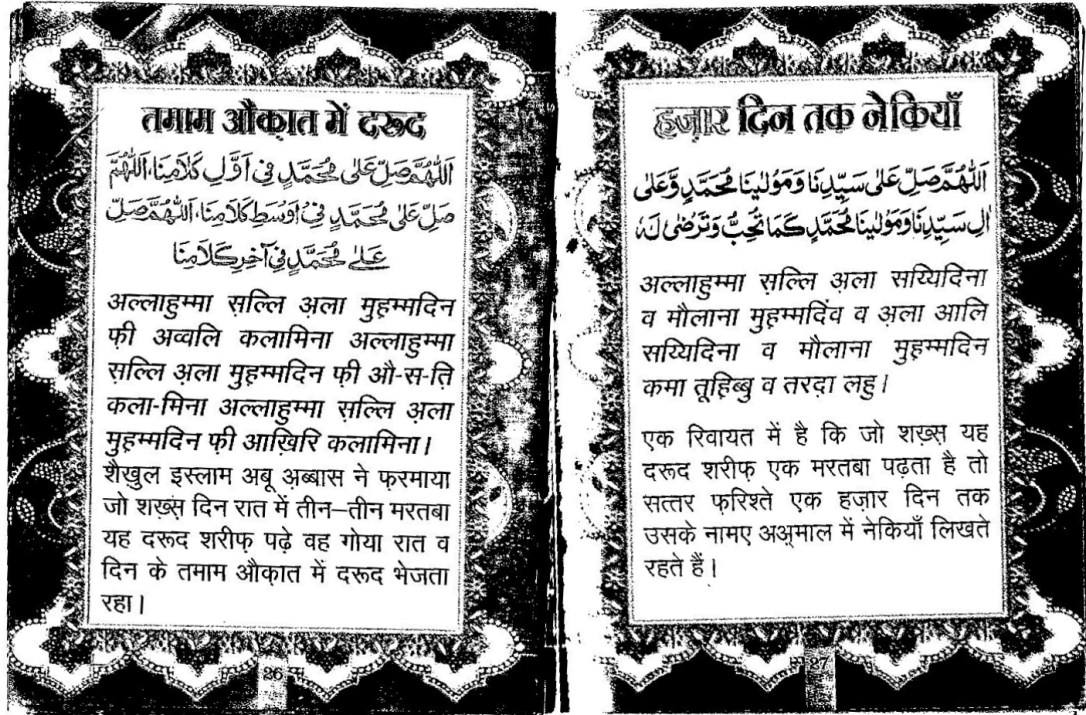 तमाम औक़ात में दरूद
اَللّٰهُمَّ صَلِّ عَلٰى مُحَمَّدٍ فِىْ اَوَّلِ كَلَامِنَا، اَللّٰهُمَّ
صَلِّ عَلٰى مُحَمَّدٍ فِىْ اَوْسَطِ كَلَامِنَا، اَللّٰهُمَّ صَلِّ
عَلٰى مُحَمَّدٍ فِىْ آخِرِ كَلَامِنَا
अल्लाहुम्मा स़ल्लि अ़ला मुह़म्मदिन
फ़ी अव्वलि कलामिना अल्लाहुम्मा
स़ल्लि अ़ला मुह़म्मदिन फ़ी औ-स-त़ि
कला-मिना अल्लाहुम्मा स़ल्लि अ़ला
मुह़म्मदिन फ़ी आख़िरि कलामिना।
शैख़ुल इस्लाम अबू अ़ब्बास ने फ़रमाया
जो शख़्स़ दिन रात में तीन–तीन मरतबा
यह दरूद शरीफ़ पढ़े वह गोया रात व
दिन के तमाम औक़ात में दरूद भेजता
रहा।
26
हज़ार दिन तक नेकियाँ
اَللّٰهُمَّ صَلِّ عَلٰى سَيِّدِنَا وَمَوْلٰينَا مُحَمَّدٍ وَّعَلٰى
اٰلِ سَيِّدِنَا وَمَوْلٰينَا مُحَمَّدٍ كَمَا تُحِبُّ وَتَرْضٰى لَهٗ
अल्लाहुम्मा स़ल्लि अ़ला सय्यिदिना
व मौलाना मुह़म्मदिंव व अ़ला आलि
सय्यिदिना व मौलाना मुह़म्मदिन
कमा तूह़िब्बु व तरद़ा लहु।
एक रिवायत में है कि जो शख़्स़ यह
दरूद शरीफ़ एक मरतबा पढ़ता है तो
सत्तर फ़रिश्ते एक हज़ार दिन तक
उसके नामए अअ़्माल में नेकियाँ लिखते
रहते हैं।
27